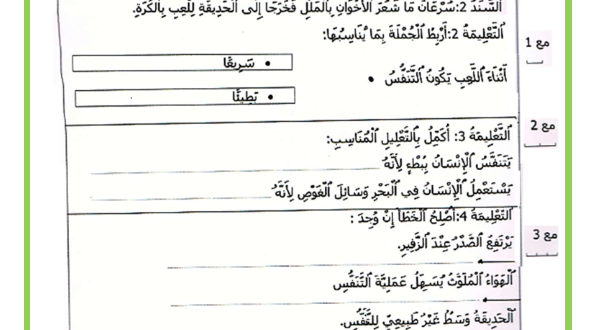 اَلسَّنَدُ 2:سُرْعَانَ مَا شَعَرَ الْأَخَوَانِ بِالْمَلَلِ فَخَرَجَا إِلَى الْحَدِيقَةِ لِلَّعِبِ بِالْكُرَةِ.
اَلتَّعْلِيمَةُ 2:أَرْبِطُ الْجُمْلَةَ بِمَا يُنَاسِبُهَا:
مع 1
سَرِيعًا
أَثْنَاءَ اَللَّعِبِ يَكُونُ اَلتَّنَفُّسُ
بَطِيئًا
اَلتَّعْلِيمَةُ 3: أُكَمِّلُ بِالتَّعْلِيلِ الْمُنَاسِبِ:
مع 2
يَتَنَفَّسُ الْإِنْسَانُ بِبُطْءٍ لِأَنَّهُ
يَسْتَعْمِلُ الْإِنْسَانُ فِي اَلْبَحْرِ وَسَائِلَ الْغَوْصِ لِأَنَّهُ
اَلتَّعْلِيمَةُ 4:أُصْلِحُ الْخَطَأَ إِنْ وُجِدَ :
مع 3
يَرْتَفِعُ الصَّدْرُ عِنْدَ الزَّفِيرِ.
اَلْهَوَاءُ الْمُلَوَّثُ يُسَهِّلُ عَمَلِيَّةَ اَلتَّنَفُّسِ
اَلْحَدِيقَةُ وَسَطٌ غَيْرُ طَبِيعِيٍّ لِلتَّنَفُّسِ.